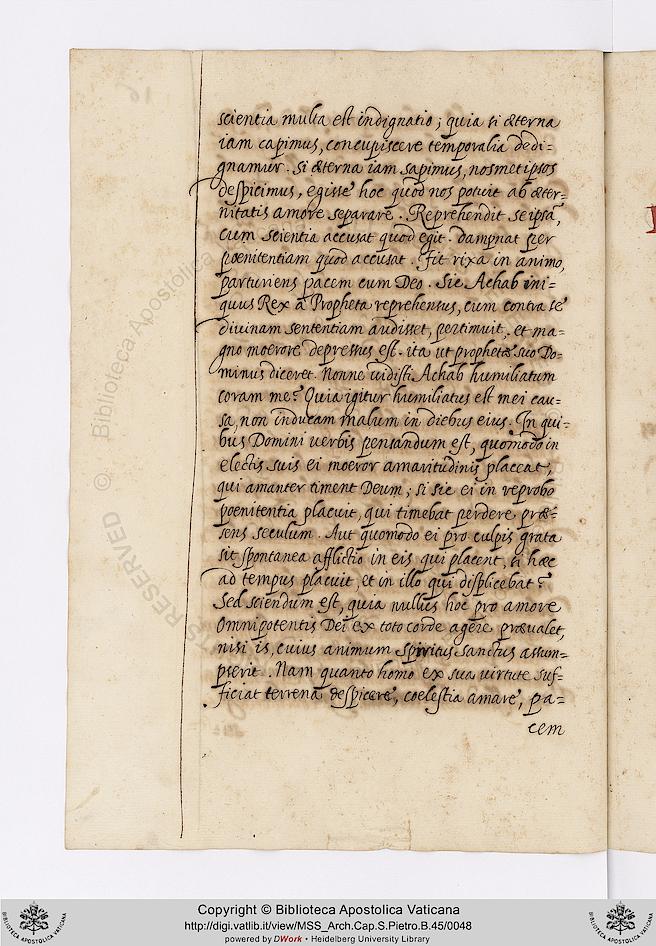 scientia multa est indignatio; quia si æterna
iam capimus, concupiscere temporalia dedi=
gnamur. Si æterna iam sapimus, nosmetipsos
despicimus, egisse hoc quod nos potuit ab æter=
nitatis amore separare. Reprehendit se ipsa,
cum scientia accusat quod egit. dampnat per
pœnitentiam quod accusat. Fit rixa in animo,
parturiens pacem cum Deo. Sic Achab ini=
quus Rex a Propheta reprehensus, cum contra se
divinam sententiam audisset, pertimuit, et ma=
gno moerore depressus est. ita ut prophetæ suo Do=
minus diceret. Nonne vidisti Achab humiliatum
coram me? Quia igitur humiliatus est mei cau=
sa, non inducam malum in diebus eius. In qui=
bus Domini uerbis pensandum est, quomodo in
electis suis ei moeror amaritudinis placeat,
qui amanter timent Deum; si sic ei in reprobo
poenitentia placuit, qui timebat perdere præ=
sens seculum. Aut quomodo ei pro culpis grata
sit spontanea afflictio in eis qui placent, si hæc
ad tempus placuit, et in illo qui displicebat?
Sed sciendum est, quia nullus hoc pro amore
Omnipotentis Dei ex toto corde agere præualet,
nisi is, cuius animum spiritus sanctus assum=
pserit. Nam quanto homo ex sua uirtute suf=
ficiat terrena despicere, coelestia amare, pa=
cem
© Biblioteca Apostolica
TS RESERVED ©
Copyright © Biblioteca Apostolica Vaticana
http://digi.vatlib.it/view/MSS_Arch.Cap.S.Pietro.B.45/0048
powered by DWork • Heidelberg University Library
BIBLIOTECA APOSTOLICA VATICANA
BIBLIOTECA APOSTOLICA VATICANA